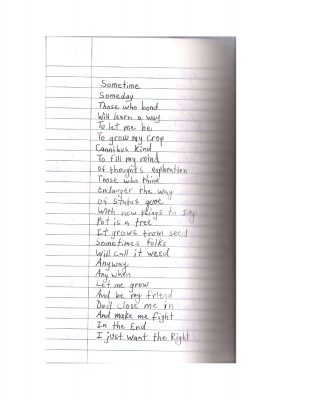 Sometime
Someday
Those who bond
Will learn a way
To let me be
To grow my crop
Cannibus Kind
To fill my mind
Of thoughts exploration
Those who think
Enlarger the way
Of Status
With new things to say
Pot is a tree
It grows from seed
Sometimes folks
Will call it weed
Anyway
Any when
Let me grow
And be my friend
Don't close me in
And make me fight
In the End
I just want the Right